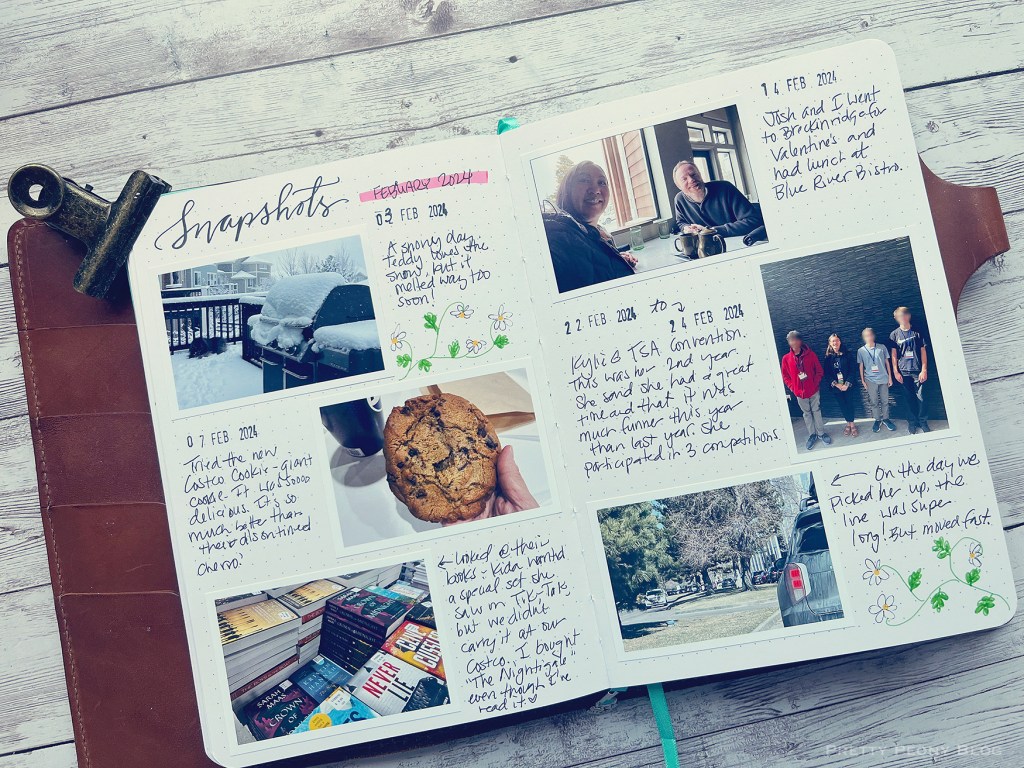 Snapshots
FEBUARY 2024
03 FEB 2024
A snowy day
teddy loves the
snow, but it
melted way too
soon!
07 FEB 2024
Tried the new
Costco Cookie - giant
cookie. It was sooo
delicious. It's so
much better than
their discontinued
Churro!
← Looked @ their
books - Kida wanted
a special set she
saw on Tik-Tok,
but we didn't
carry it at our
Costco. I bought
"The Nightigale"
even though I've
read it.
SARAH
MAAS
CROWN OF
NEVER
LIE
CLIVE
CUSSLER
14 FEB 2024
Josh and I went
to Breckinridge for
Valentine's and
had lunch at
Blue River Bistro.
22 FEB 2024 to
24 FEB 2024
Kylie @ TSA Convention.
This was her 2nd year.
She said she had a great
time and that it was
much funner this year
than last year. She
participated in 3 competitions.
← On the day we
picked her up, the
line was super
long! But moved fast.
PRETTY PEONY BLOG